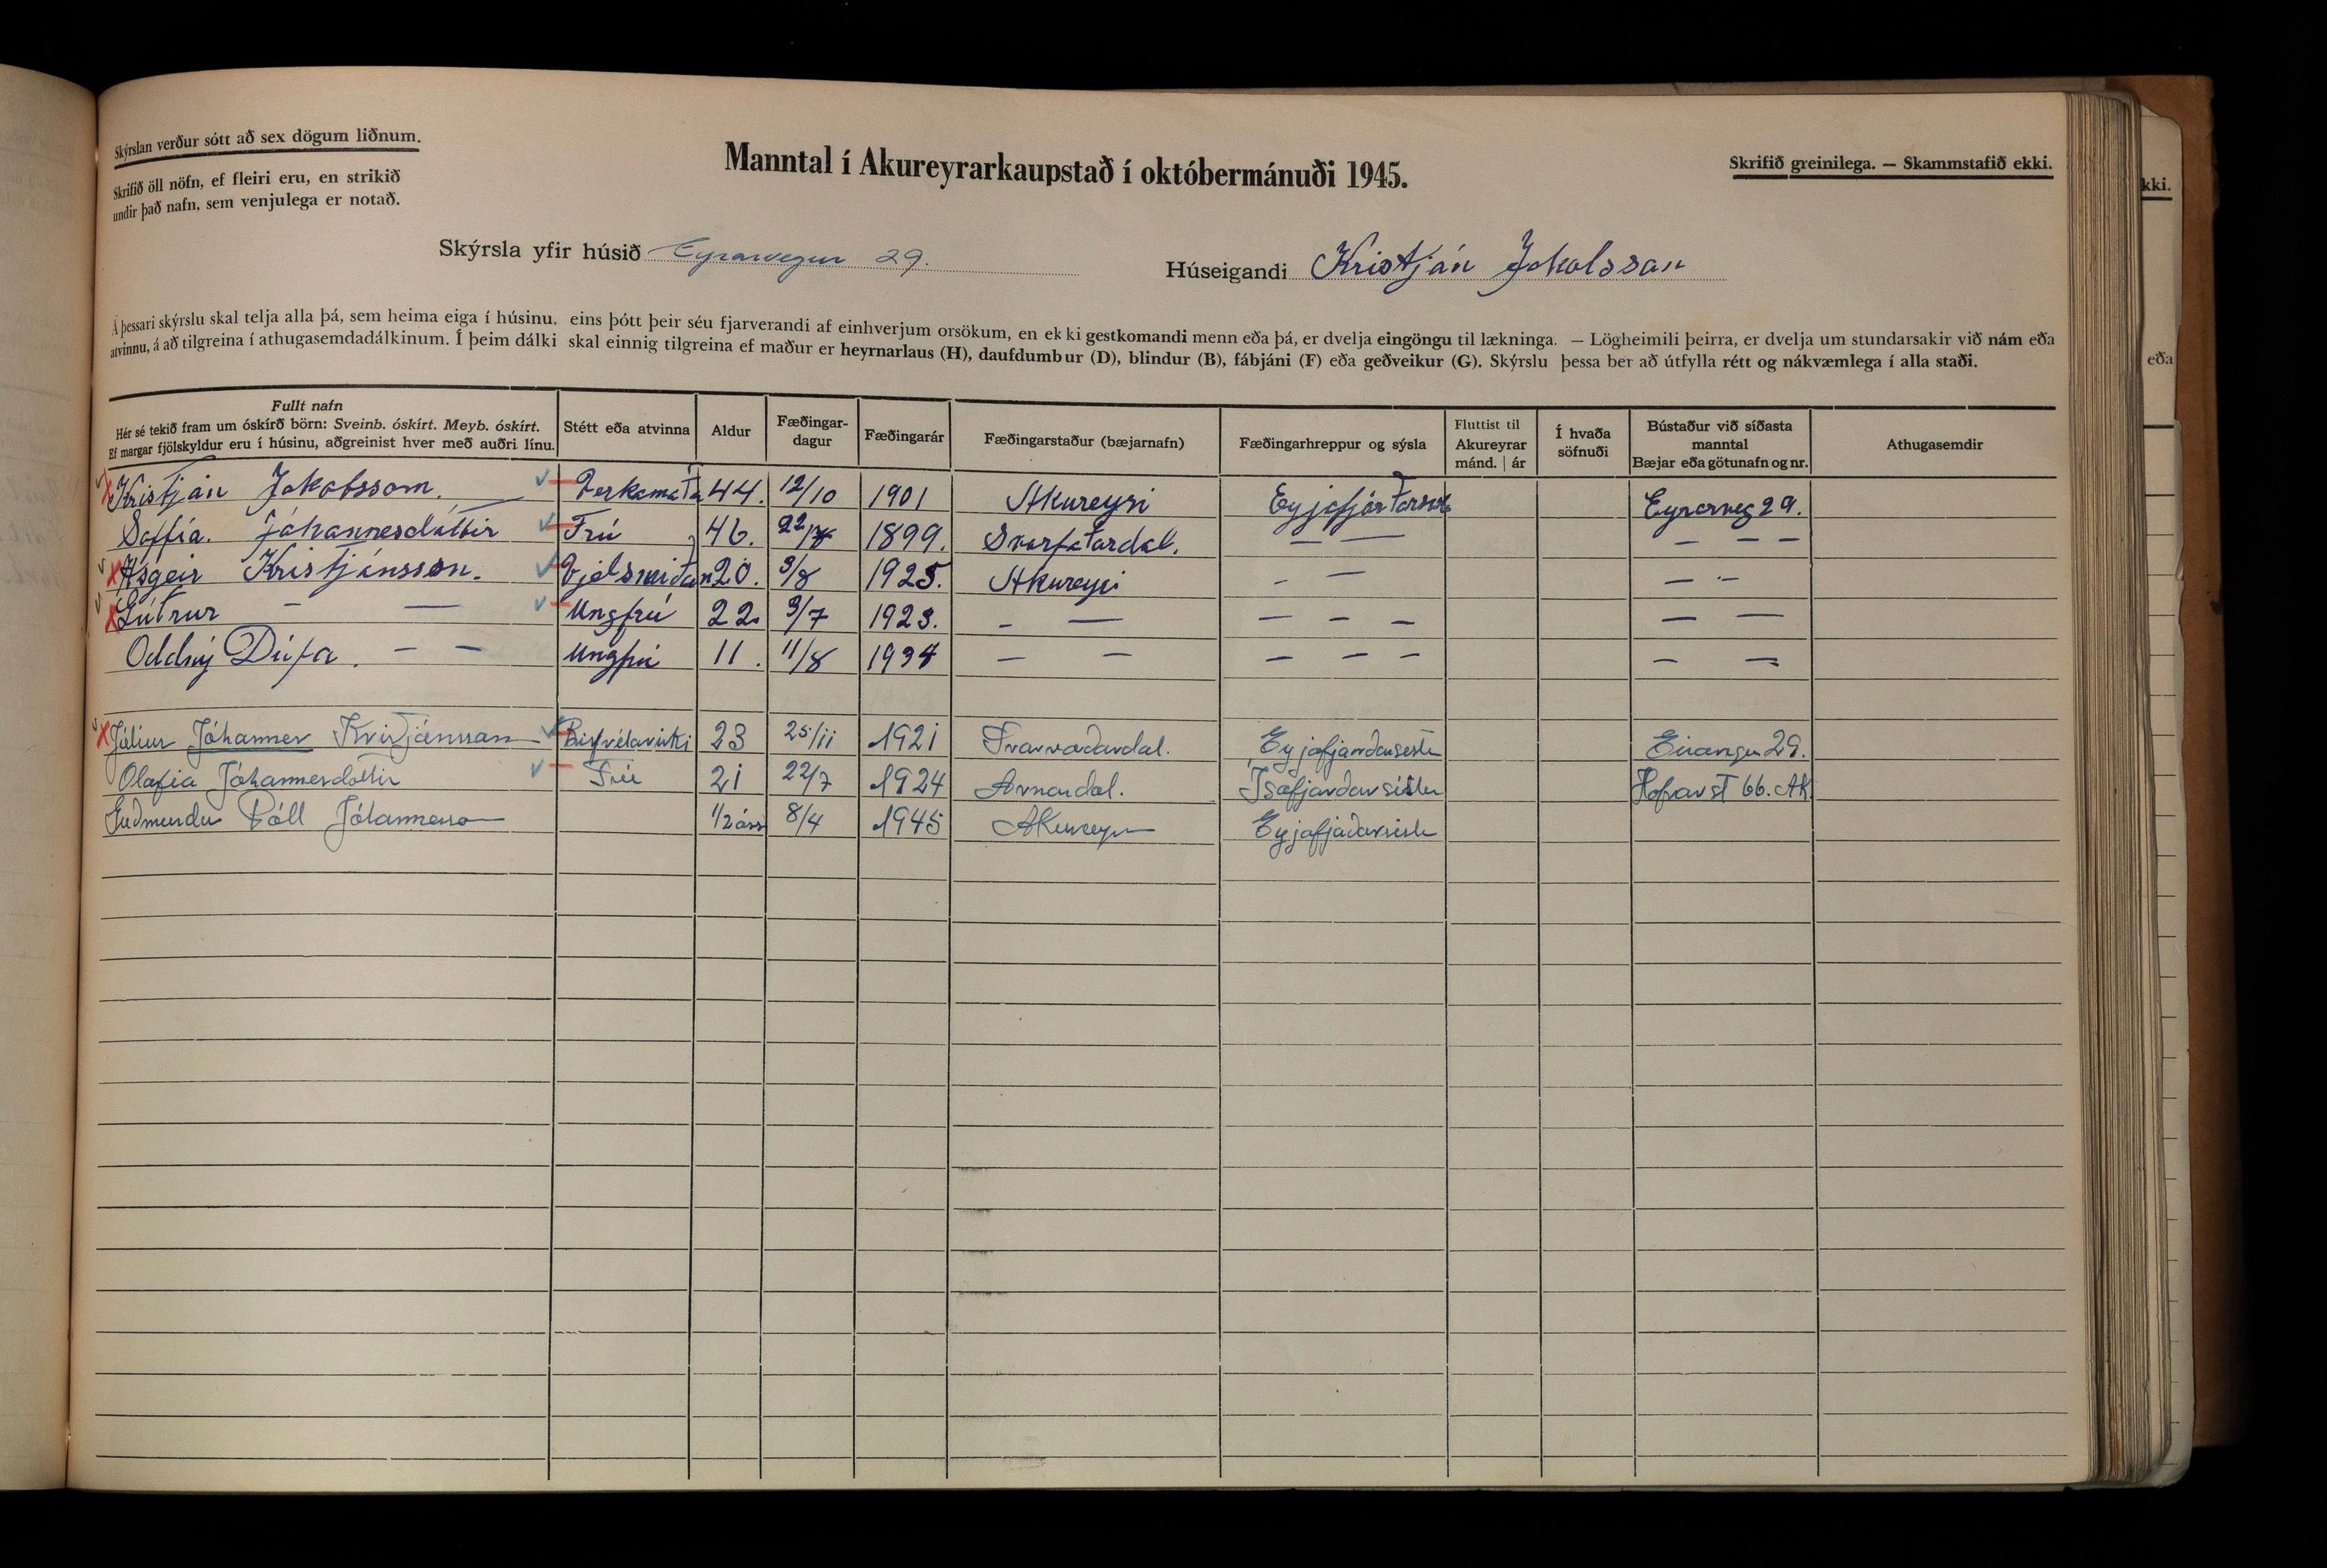 Skýrslan verður sótt að sex dögum liðnum.
Skrifið öll nöfn, ef fleiri eru, en strikið
undir það nafn, sem venjulega er notað.
Manntal í Akureyrarkaupstað í októbermánuði 1945.
Skrifið greinilega. — Skammstafið ekki.
kki.
Skýrsla yfir húsið Eyrarvegur 29.
Húseigandi Kristján Jakobsson
Á þessari skýrslu skal telja alla þá, sem heima eiga í húsinu, eins þótt þeir séu fjarverandi af einhverjum orsökum, en ekki gestkomandi menn eða þá, er dvelja eingöngu til lækninga. — Lögheimili þeirra, er dvelja um stundarsakir við nám eða
atvinnu, á að tilgreina í athugasemdadálkinum. Í þeim dálki skal einnig tilgreina ef maður er heyrnarlaus (H), daufdumbur (D), blindur (B), fábjáni (F) eða geðveikur (G). Skýrslu þessa ber að útfylla rétt og nákvæmlega í alla staði.
eða
Fullt nafn
Hér sé tekið fram um óskírð börn: Sveinb. óskírt. Meyb. óskírt.
Ef margar fjölskyldur eru í húsinu, aðgreinist hver með auðri línu.
Stétt eða atvinna
Aldur
Fæðingar-
dagur
Fæðingarár
Fæðingarstaður (bæjarnafn)
Fæðingarhreppur og sýsla
Fluttist til
Akureyrar
mánd. | ár
Í hvaða
söfnuði
Bústaður við síðasta
manntal
Bæjar eða götunafn og nr.
Athugasemdir
Kristján Jakobsson. Verkamaður 44. 12/10 1901 Akureyri Eyjafjarðars Eyrarveg 29.
Soffía. Jóhannesdóttir Frú 46. 22/7 1899. Svarfaðardal. — — — — —
Ásgeir Kristjánsson. 20. 3/8 1925. Akureyri - — — -
Guðrur - — Ungfrú 22. 3/7 1923. - — — — — — —
Oddný Dúfa. — — Ungfrú 11. 11/8 1934 — — — — — — —
Júlíus Jóhannes Kristjánsson Bifvélavirki 23 25/11 1921 Svarvaðardal. Eyjafjarðarsíslu 29.
Olafia Jóhannesdóttir Frú 21 22/7 1924 Arnardal. Ísafjarðarsíslu 66. AK
Guðmundur Páll Jóhannesso 1/2 árs 8/4 1945 AKureyri Eyjafjaðarsíslu